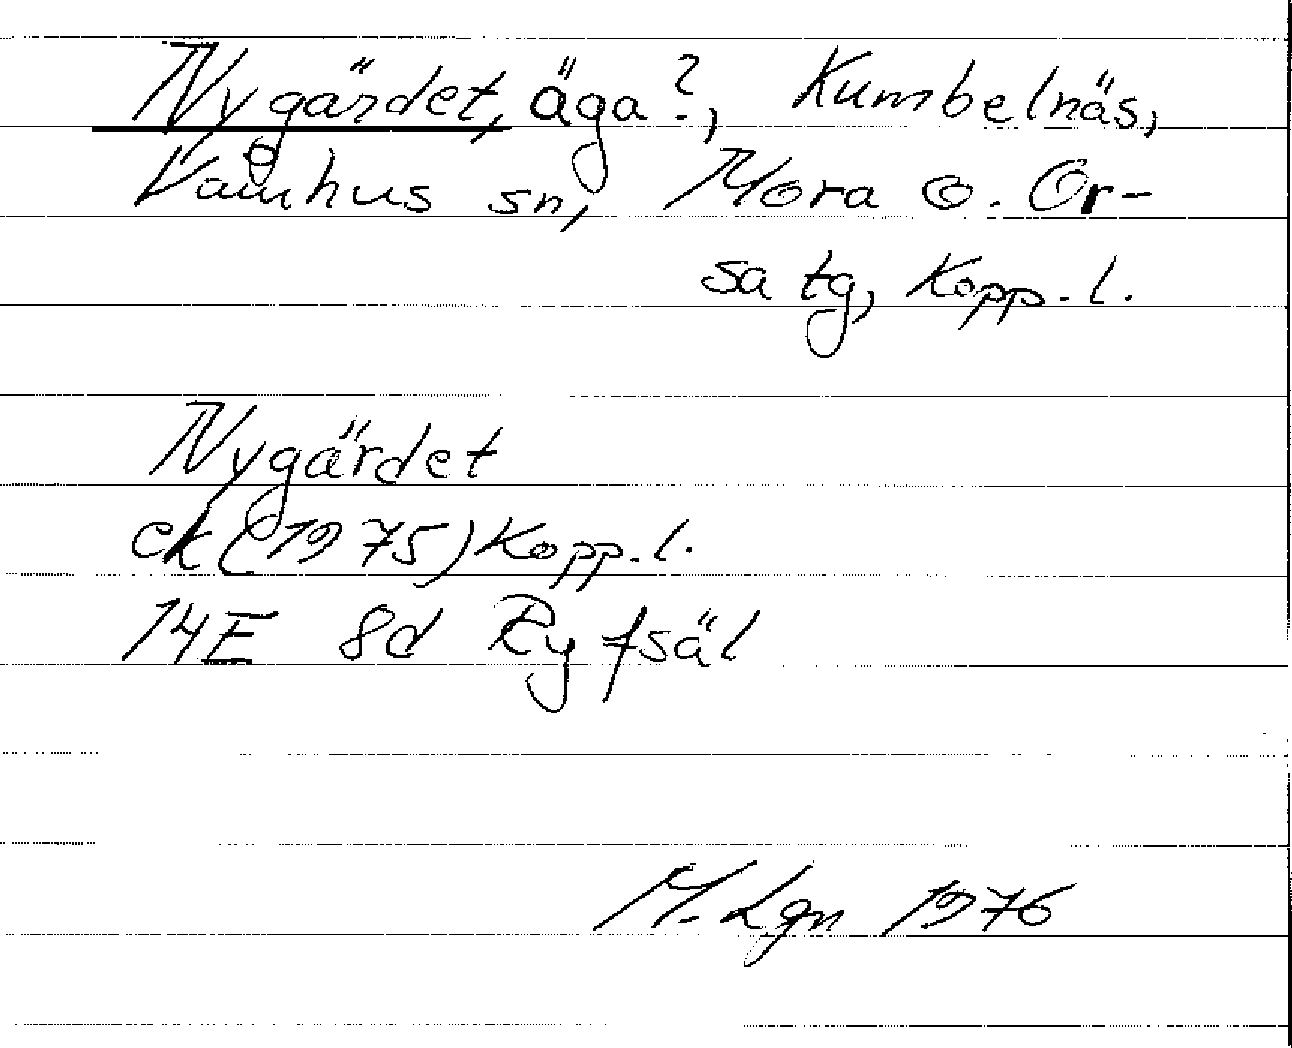 Nygärdet, äga?, Kumbelnäs,
Våmhus sn, Mora o. Or-
sa tg, Kopp. l.
Nygärdet
ek (1975) Kopp. l.
14E 8d Ryfsäl
M. Lgn 1976